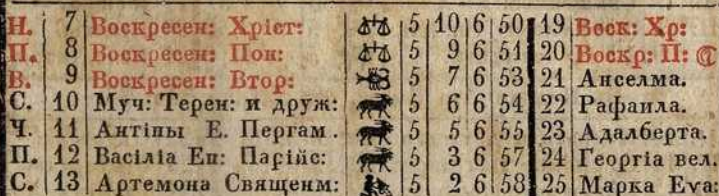 Н. 7 Воскресен: Хріст: 5 10 6 50 19 Воск: Хр:
П. 8 Воскресен: Пон: 5 9 6 51 20 Воскр: П:
В. 9 Воскресен: Втор: 5 7 6 53 21 Анселма.
С. 10 Муч: Терен: и друж: 5 6 6 54 22 Рафаила.
Ч. 11 Антіпы Е. Пергам. 5 5 6 55 23 Адалберта.
П. 12 Васіліа Еп: Парійс: 5 3 6 57 24 Георгіа вел.
С. 13 Артемона Священм: 5 2 6 58 25 Марка Ева: